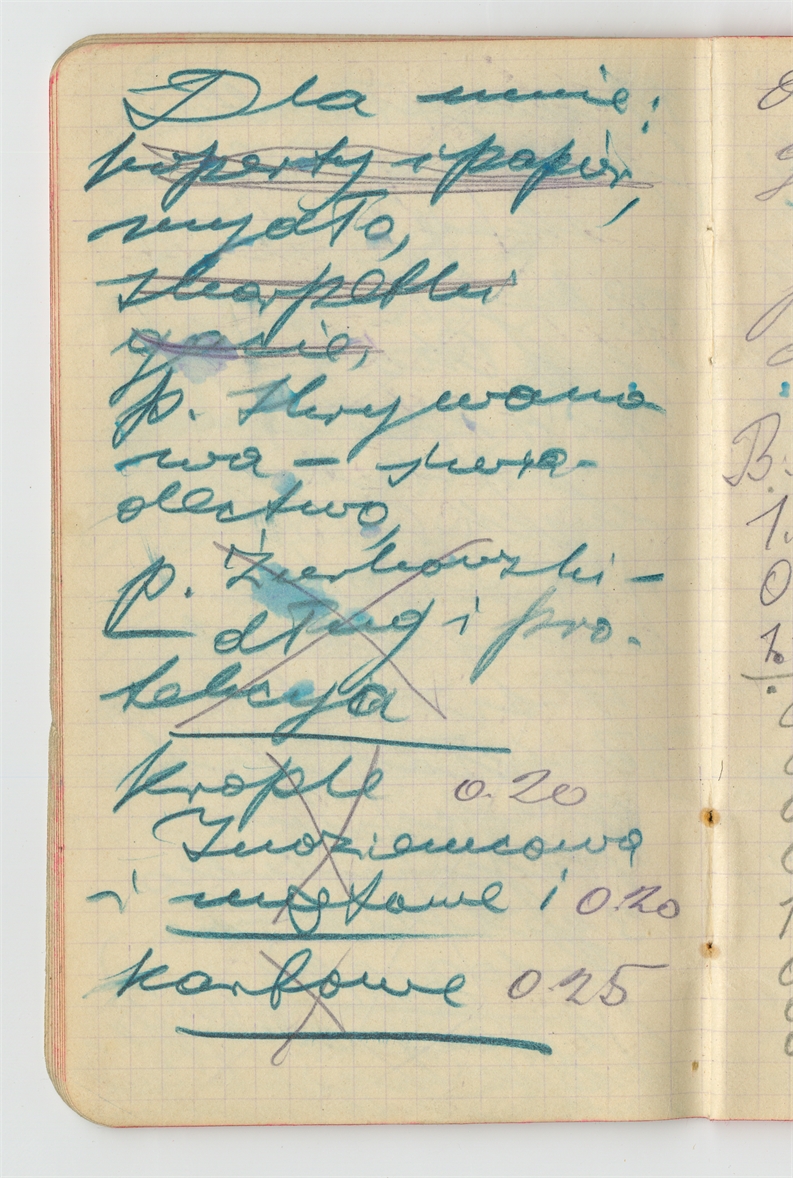 Dla mnie:
koperty i papier,
mydło,
skarpetki
gacie,
p. Skrywano
wa – świa-
dectwo,
p. Żurkowski –
dług i pro-
tekcja
krople 0.20
Inoziemcowa
i miętowe i 0.20
karbowe 0.25
B.
1.
0
1.